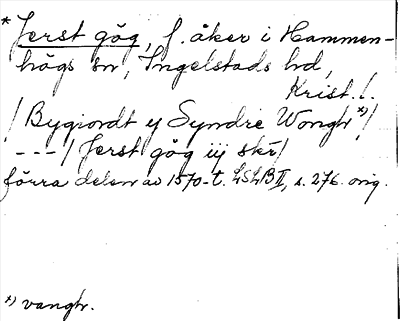 * Jerst gög, f. åker i Hammen-
högs sn, Ingelstads hd,
Krist. l.
/ Bygiordt y Syndre Wongh *) /
--- / Jerst gög iij skr /
förra delen av 1570-t. LSLB II, s. 276. orig.
*) vangtr.